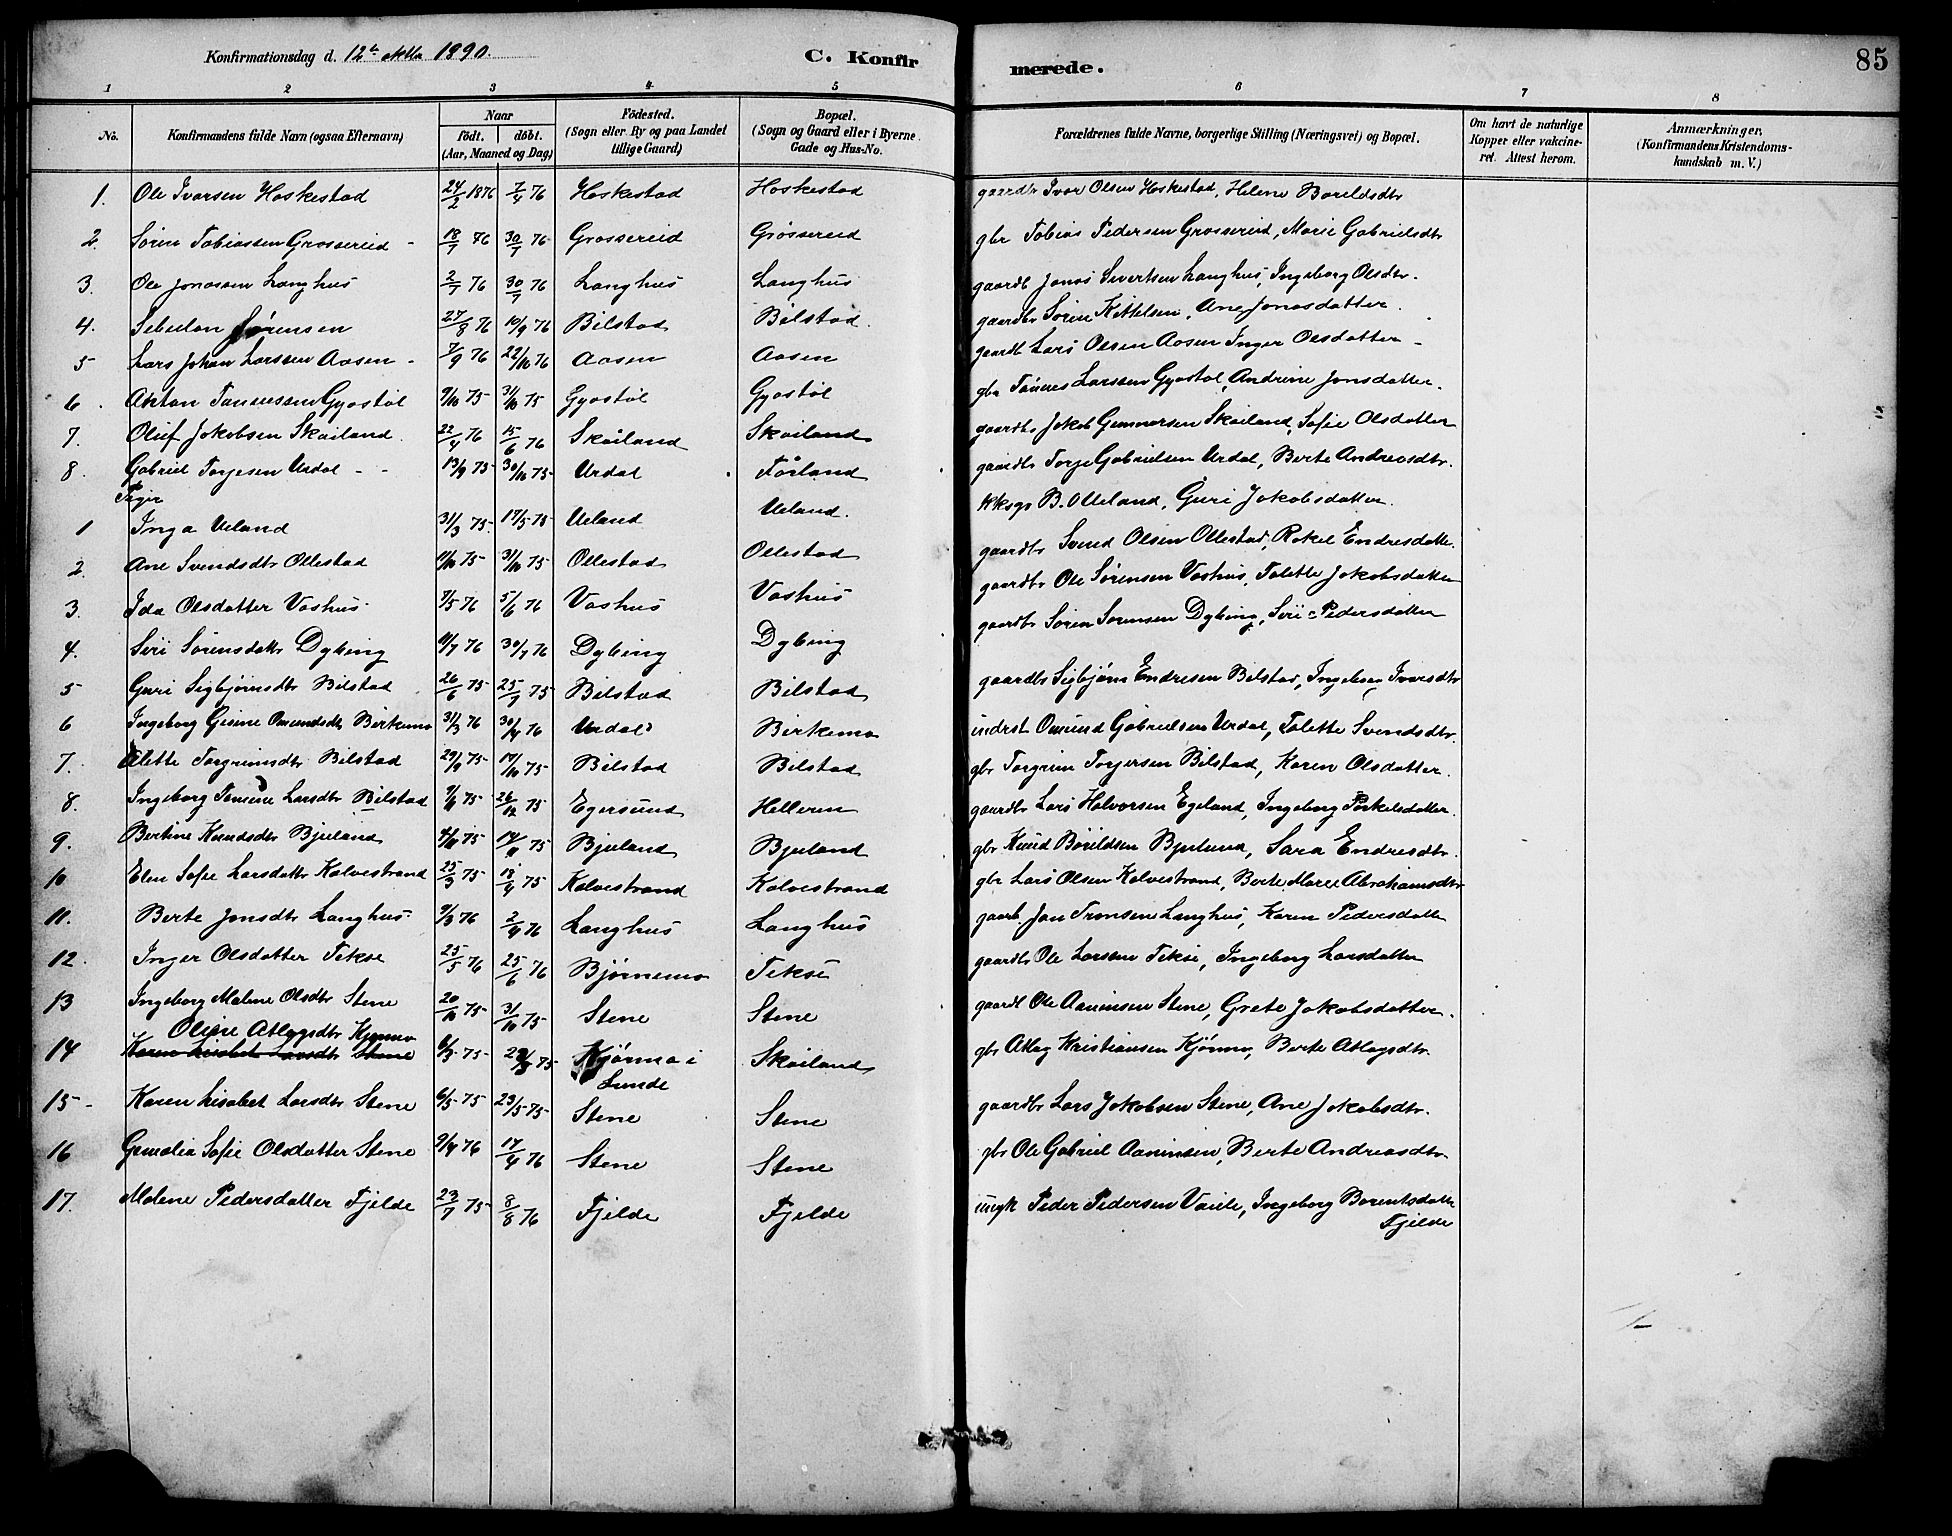 Konfirmationsdag d. 12te 1890.
C. Konfirmerede.
85
1 2 3 4 5 6 7 8
No.
Konfirmandens fulde Navn (ogsaa Efternavn)
Naar
födt. döbt.
(Aar, Maaned og Dag)
Födested.
(Sogn eller By og paa Landet
tillige Gaard)
Bopæl.
(Sogn og Gaard eller i Byerne
Gade og Hus-No.
Forældrenes fulde Navne, borgerlige Stilling (Næringsvei) og Bopæl.
Om havt de naturlige
Kopper eller vakcine-
ret. Attest herom.
Anmærkninger,
(Konfirmandens Kristendoms-
kundskab m. V.)
1. Ole Ivarsen Hoskestad 24/2 1876 7/4 76 Hoskestad Hoskestad gaardbr Ivar Olsen Hoskestad, Helene Boreldsdtr
2. Sören Tobiassen Grossereid 18/7 76 30/7 76 Grossereid Grössereid gbr Tobias Pedersen Grossereid, Marie Gabrielsdtr
3. Ole Jonassen Langhus 2/7 76 30/7 76 Langhus Langhus gaardb Jonas Sivertsen Langhus, Ingeborg Olsdtr.
4. Sebulon Sørensen 27/8 76 10/9 76 Bilstad Bilstad. gaardbr Sören Kittelsen, Ane Jonasdatter.
5 Lars Johan Larssen Aasen 7/9 76 22/10 76 Aasen Aasen gaardb Lars Olsen Aasen Inger Olsdatter
6. Anton Gyastöl 9/10 75 31/10 75 Gyastöl Gyastöl gbr Larssen Gyastöl, Andrine Jonsdatter.
7. Oluf Jokobsen Skailand. 22/4 76 15/6 76 Skailand Skailand gaardbr Jokob Gunnarsen Skailand, Sofie Olsdatter
8. Gabriel Torjesen Urdal 13/9 75 30/10 75 Urdal Förland gaardbr Torje Gabrielsen Urdal, Berte Andreasdtr.
Piger
1 Inga Ueland 31/3 75. 17/5 75 Ueland Ueland. kksgr B. O Ueland, Guri Jokobsdatter.
2. Ane Svendsdtr Ollestad 11/10 75 31/10 75 Ollestad Ollestad gaardbr Svend Olsen Ollestad, Rakel Endresdatter.
3. Ida Olsdatter Vashus 7/5 76 5/6 76 Vashus Vashus gaardbr Ole Sörensen Vashus, Talette Jokobsdatter
4. Siri Sörensdatter Dybing 11/7 76 30/7 76 Dybing Dybing gaardbr Sören Sörensen Dybing, Siri Pedersdatter
5 Guri Sigbjörnsdtr Bilstad 26/6 75 25/7 75 Bilstad Bilstad gaardbr Sigbjörn Endresen Bilstad, Ingeborg Ivarsdtr
6 Ingeborg Gesine Omundsdtr Birkemo 31/3 76 30/4 76 Urdal Birkemo indrst Omund Gabrielsen Urdal, Talette Svendsdtr.
7. Alette Torgrimsdtr Bilstad 29/9 75 17/10 75 Bilstad Bilstad gbr Torgrim Torjersen Bilstad, Karen Olsdatter.
8. Ingeborg Larsdtr Bilstad 26/12 75 Egersund Helleren gaardbr Lars Halvorsen Egeland, Ingeborg
9. Bertine Knudsdtr Bjuland 14/11 75 Bjuland Bjuland gbr Knud Böieldsen Bjuland, Sara Endresdtr.
10 Elen Sofie Larsdatter Kalvestrand 25/3 75 18/4 75 Kalvestrand Kalvestrand gbr Lars Olsen Kalvestrand, Berte Marie Abrahamsdtr
11. Berte Jonsdtr Langhus. 9/3 76 2/4 76 Langhus Langhus gaarb. Jon Tronsen Langhus, Karen Pedersdatter
12. Inger Olsdatter Tekse 25/5 76 25/6 76 Bjørnemo Tekse gaardbr Ole Larssen Tekse, Ingeborg Larsdatter
13 Ingeborg Malene Olsdtr Stene 20/10 75 31/10 75 Stene Stene gaardb Ole Aanensen Stene, Grete Jakobsdatter.
Oline Atlagsdtr Kjørmo
14 Karen Lisabet Larsdtr Stene 6/3 75 75 Kjørmo i Skailand gbr Atlag Kristiansen Kjörmo, Berte Atlagsdtr.
Lunde
15 Karen Lisabet Larsdtr Stene 6/5 75 23/5 75 Stene Stene gaardbr Lars Jokobsen Stene, Ane Jokobsdtr.
16 Gunalia Sofie Olsdatter Stene 9/4 76 17/4 76 Stene Stene gbr Ole Gabriel Aanensen, Berte Andreasdtr
17. Malene Pedersdatter Fjelde 23/7 75 8/8 76 Fjelde Fjelde Peder Pedersen, Ingeborg Berentsdatter
Fjelde